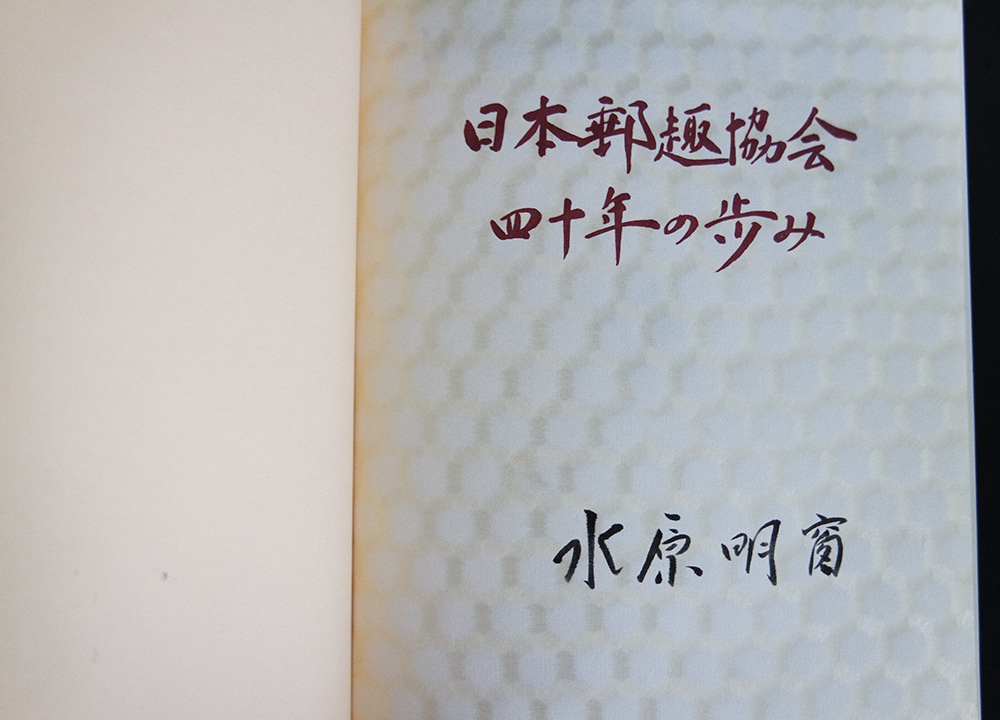 日本郵趣協会
四十年の歩み
水原明窗